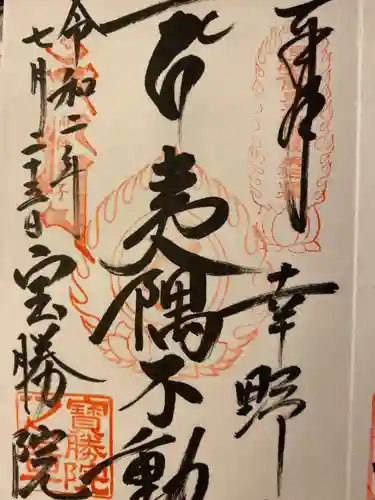 奉拝
幸野
夷隅不動
令和二年
七月二十三日
宝勝院
寶勝院